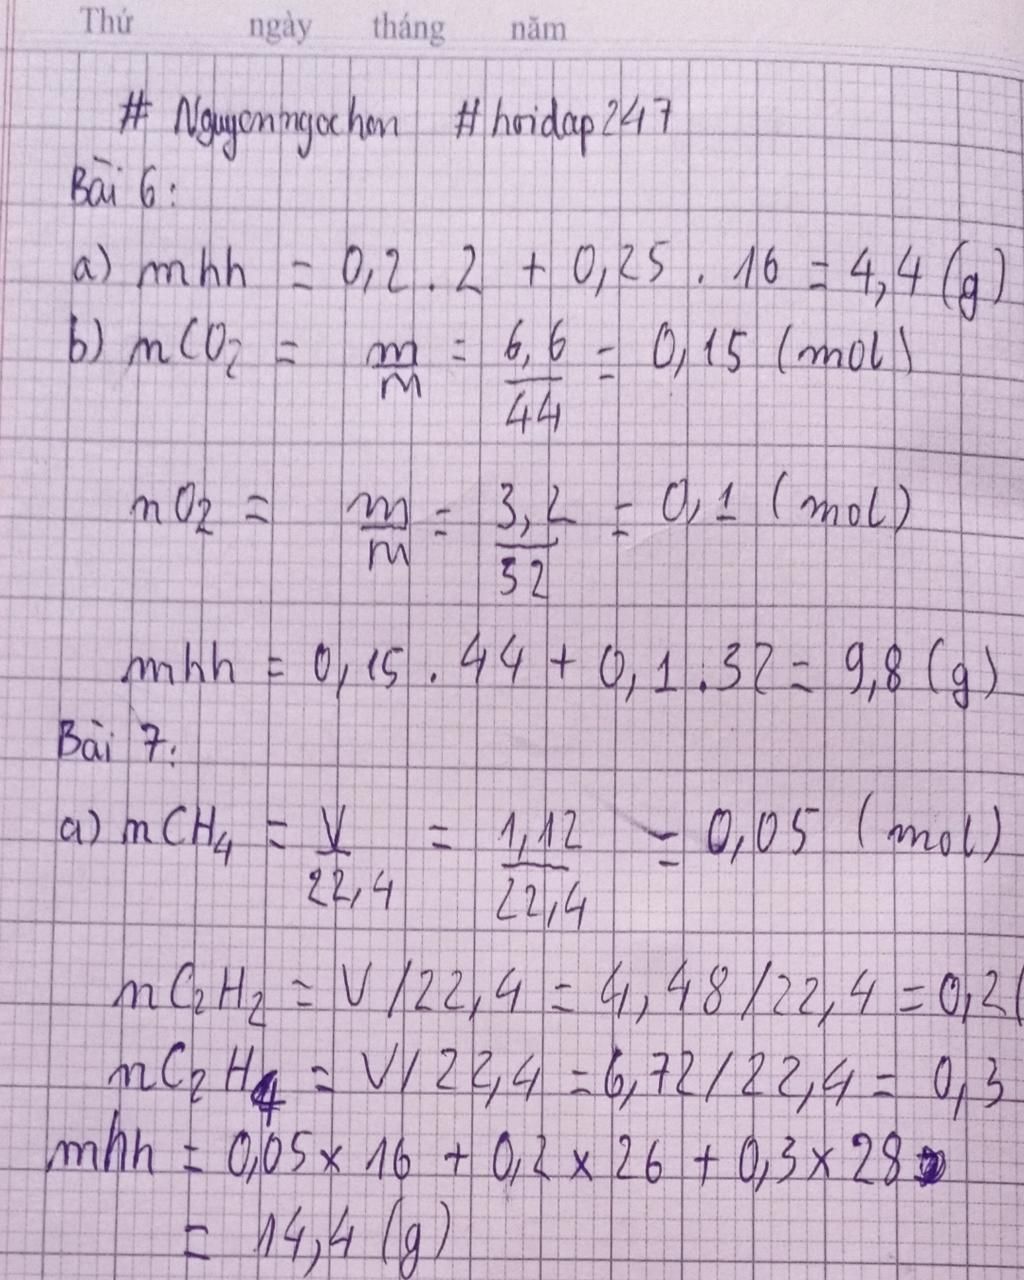 Thứ ngày tháng năm
# Nguyenngochan #hoidap247
Bài 6:
a) mhh = 0,2 . 2 + 0,25 . 16 = 4,4 (g)
b) nCO₂ = m/M = 6,6/44 = 0,15 (mol)
nO₂ = m/M = 3,2/32 = 0,1 (mol)
mhh = 0,15 . 44 + 0,1 . 32 = 9,8 (g)
Bài 7:
a) nCH₄ = V/22,4 = 1,12/22,4 = 0,05 (mol)
nC₂H₂ = V/22,4 = 4,48/22,4 = 0,2(
nC₂H₄ = V/22,4 = 6,72/22,4 = 0,3
mhh = 0,05 × 16 + 0,2 × 26 + 0,3 × 28
= 14,4 (g)